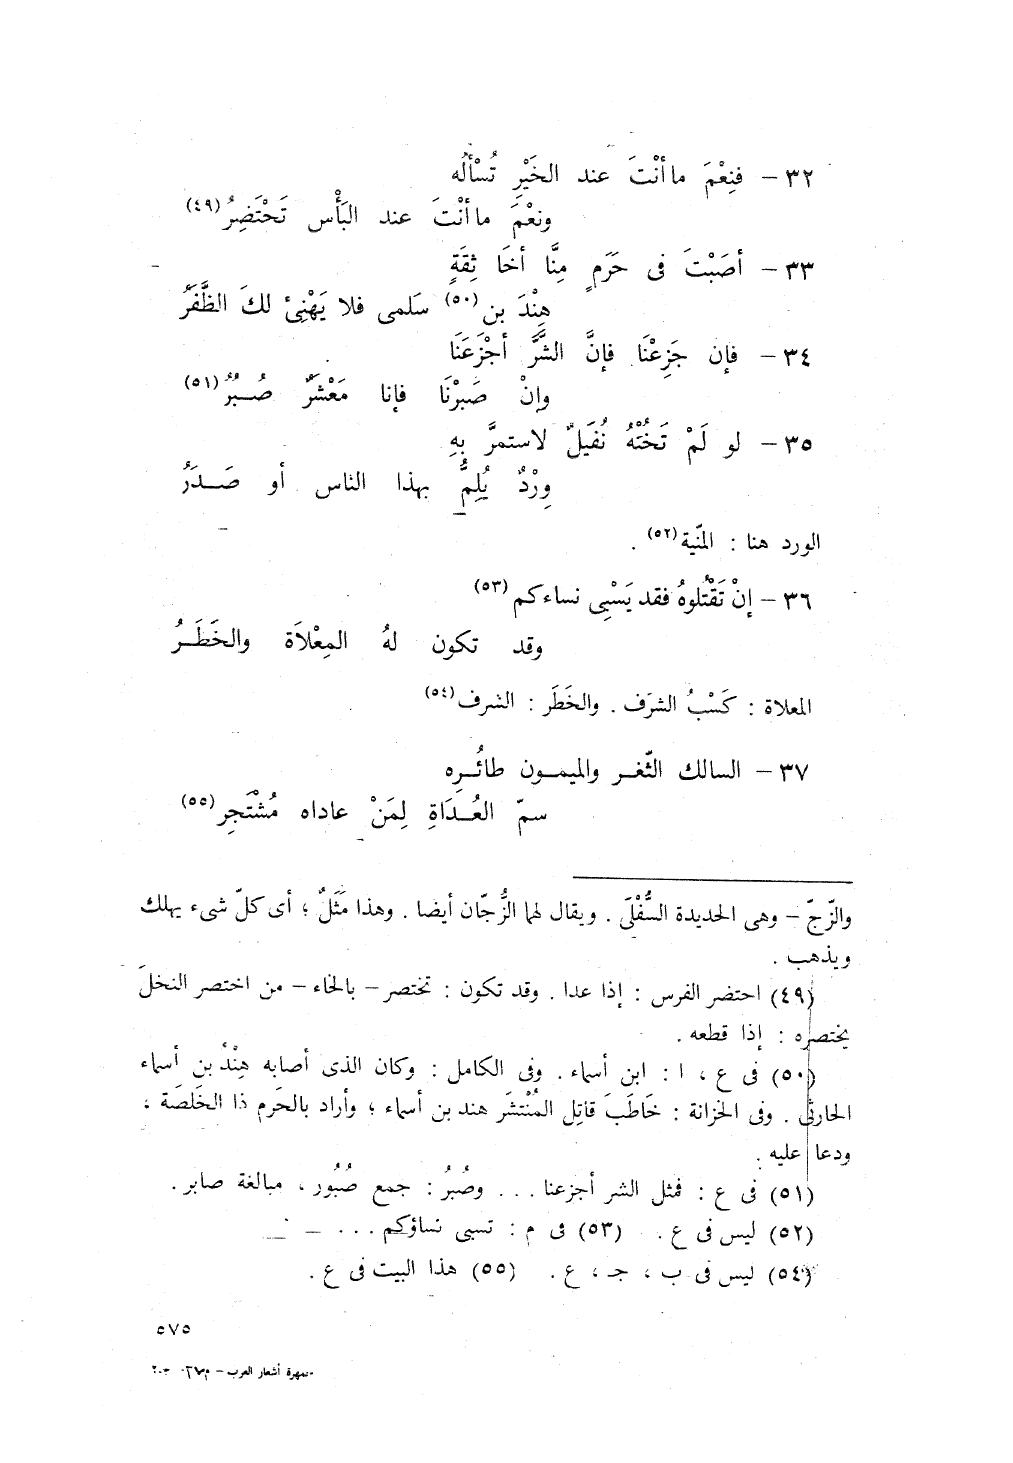 ٣٢ – فنِعْمَ ما أنْتَ عند الخَيْرِ تُسْأَلُه
ونعْمَ ما أنْتَ عند البَأْس تَحْتَضِرُ (٤٩)
٣٣ – أصَبْتَ فى حَرَمٍ مِنَّا أخَا ثِقَةٍ
هِنْدَ بن (٥٠) سَلمى فلا يَهْنِئ لكَ الظَّفَرُ
٣٤ – فإن جَزِعْنَا فإنَّ الشَّرَّ أجْزَعَنَا
وإنْ صَبَرْنَا فإنا مَعْشَرٌ صُبُرُ (٥١)
٣٥ – لو لَمْ تَخُنْهُ نُفَيلٌ لاستمرَّ بِهِ
وِرْدٌ يُلِمُّ بهذا الناس أو صَدَرُ
الورد هنا : المنّية (٥٢) .
٣٦ – إنْ تَقْتُلوهُ فقد يَسْبِى نساءكم (٥٣)
وقد تكون لهُ المِعْلاَة والخَطَرُ
المعلاة : كَسْبُ الشرَف . والخَطَر : الشرف (٥٤)
٣٧ – السالك الثّغر والميمون طائُره
سمّ العُدَاةِ لِمَنْ عاداه مُشْتَجِر (٥٥)
والزّجّ – وهى الحديدة السُّفْلَى . ويقال لهما الزُّجّان أيضا . وهذا مَثَلٌ ؛ أى كلّ شىء يهلك
ويذهب .
(٤٩) احتضر الفرس : إذا عدا . وقد تكون : تختصر – بالخاء – من اختصر النخلَ
يختصره : إذا قطعه .
(٥٠) فى ع ، ا : ابن أسماء . وفى الكامل : وكان الذى أصابه هِنْدُ بن أسماء
الحارثى . وفى الخزانة : خَاطَبَ قاتِل المُنْتشَر هند بن أسماء ؛ وأراد بالحَرم ذا الخَلصَة ،
ودعا عليه .
(٥١) فى ع : فمثل الشر أجزعنا ... وصُبُرُ : جمع صُبُور ، مبالغة صابر .
(٥٢) ليس فى ع . (٥٣) فى م : تسبى نساؤكم ...
(٥٤) ليس فى ب ، جـ ، ع . (٥٥) هذا البيت فى ع .
٥٧٥
جمهرة أشعار العرب –